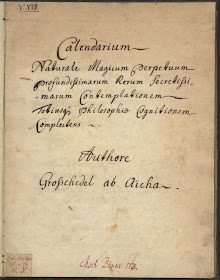 N. XVII
Calendarium
Naturale Magicum Perpetuum
profundissimarum Rerum Secretissi-
marum Contemplationem
Totiusq Philosophiæ Cognitionem
Complectens.
Authore
Grosschedel ab Aicha.